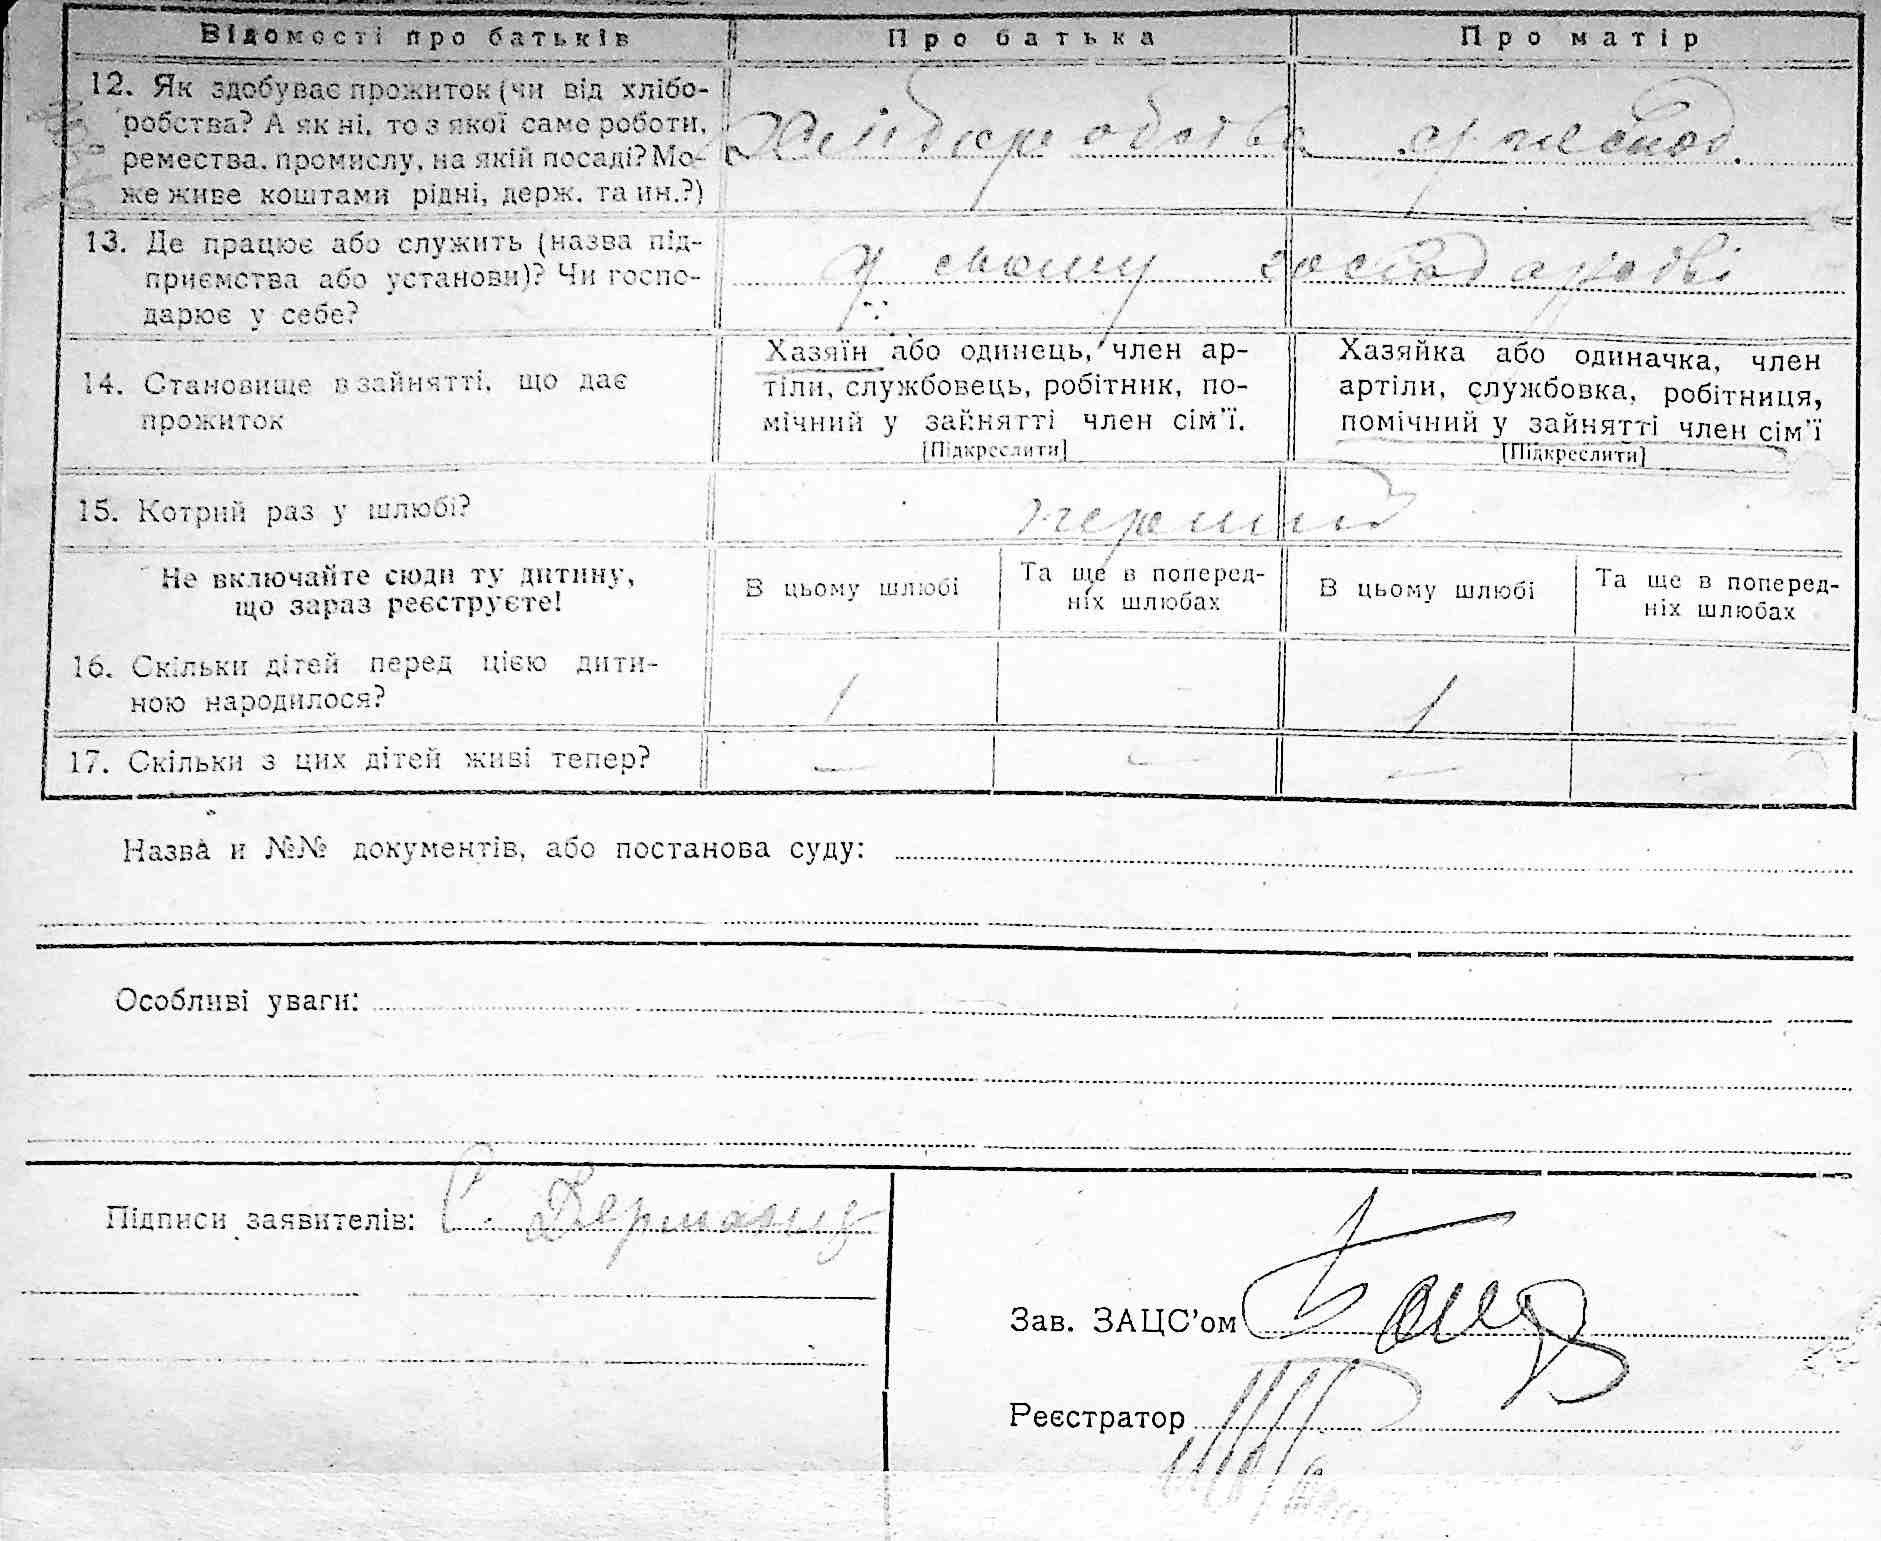 Відомості про батьків Про батька Про матір
12. Як здобуває прожиток (чи від хлібо-
робства? А як ні, то з якої само роботи,
ремества, промислу, на якій посаді? Мо-
же живе коштами рідні, держ. та ин.?)
Хліборобства
13. Де працює або служить (назва під-
приємства або установи)? Чи госпо-
дарює у себе?
у своему господарстві
14. Становище в зайнятті, що дає
прожиток
Хазяїн або одинець, член ар-
тіли, службовець, робітник, по-
мічний у зайнятті член сім'ї.
[Підкреслити]
Хазяйка або одиначка, член
артіли, службовка, робітниця,
помічний у зайнятті член сім'ї
[Підкреслити]
15. Котрий раз у шлюбі?
перший
Не включайте сюди ту дитину,
що зараз реєструєте!
В цьому шлюбі
Та ще в поперед-
ніх шлюбах
В цьому шлюбі
Та ще в поперед-
ніх шлюбах
16. Скільки дітей перед цією дити-
ною народилося?
1 - 1 —
17. Скільки з цих дітей живі тепер?
— — — —
Назва и №№ документів, або постанова суду:
Особливі уваги:
Підписи заявителів:
Зав. ЗАЦС'ом
Реєстратор